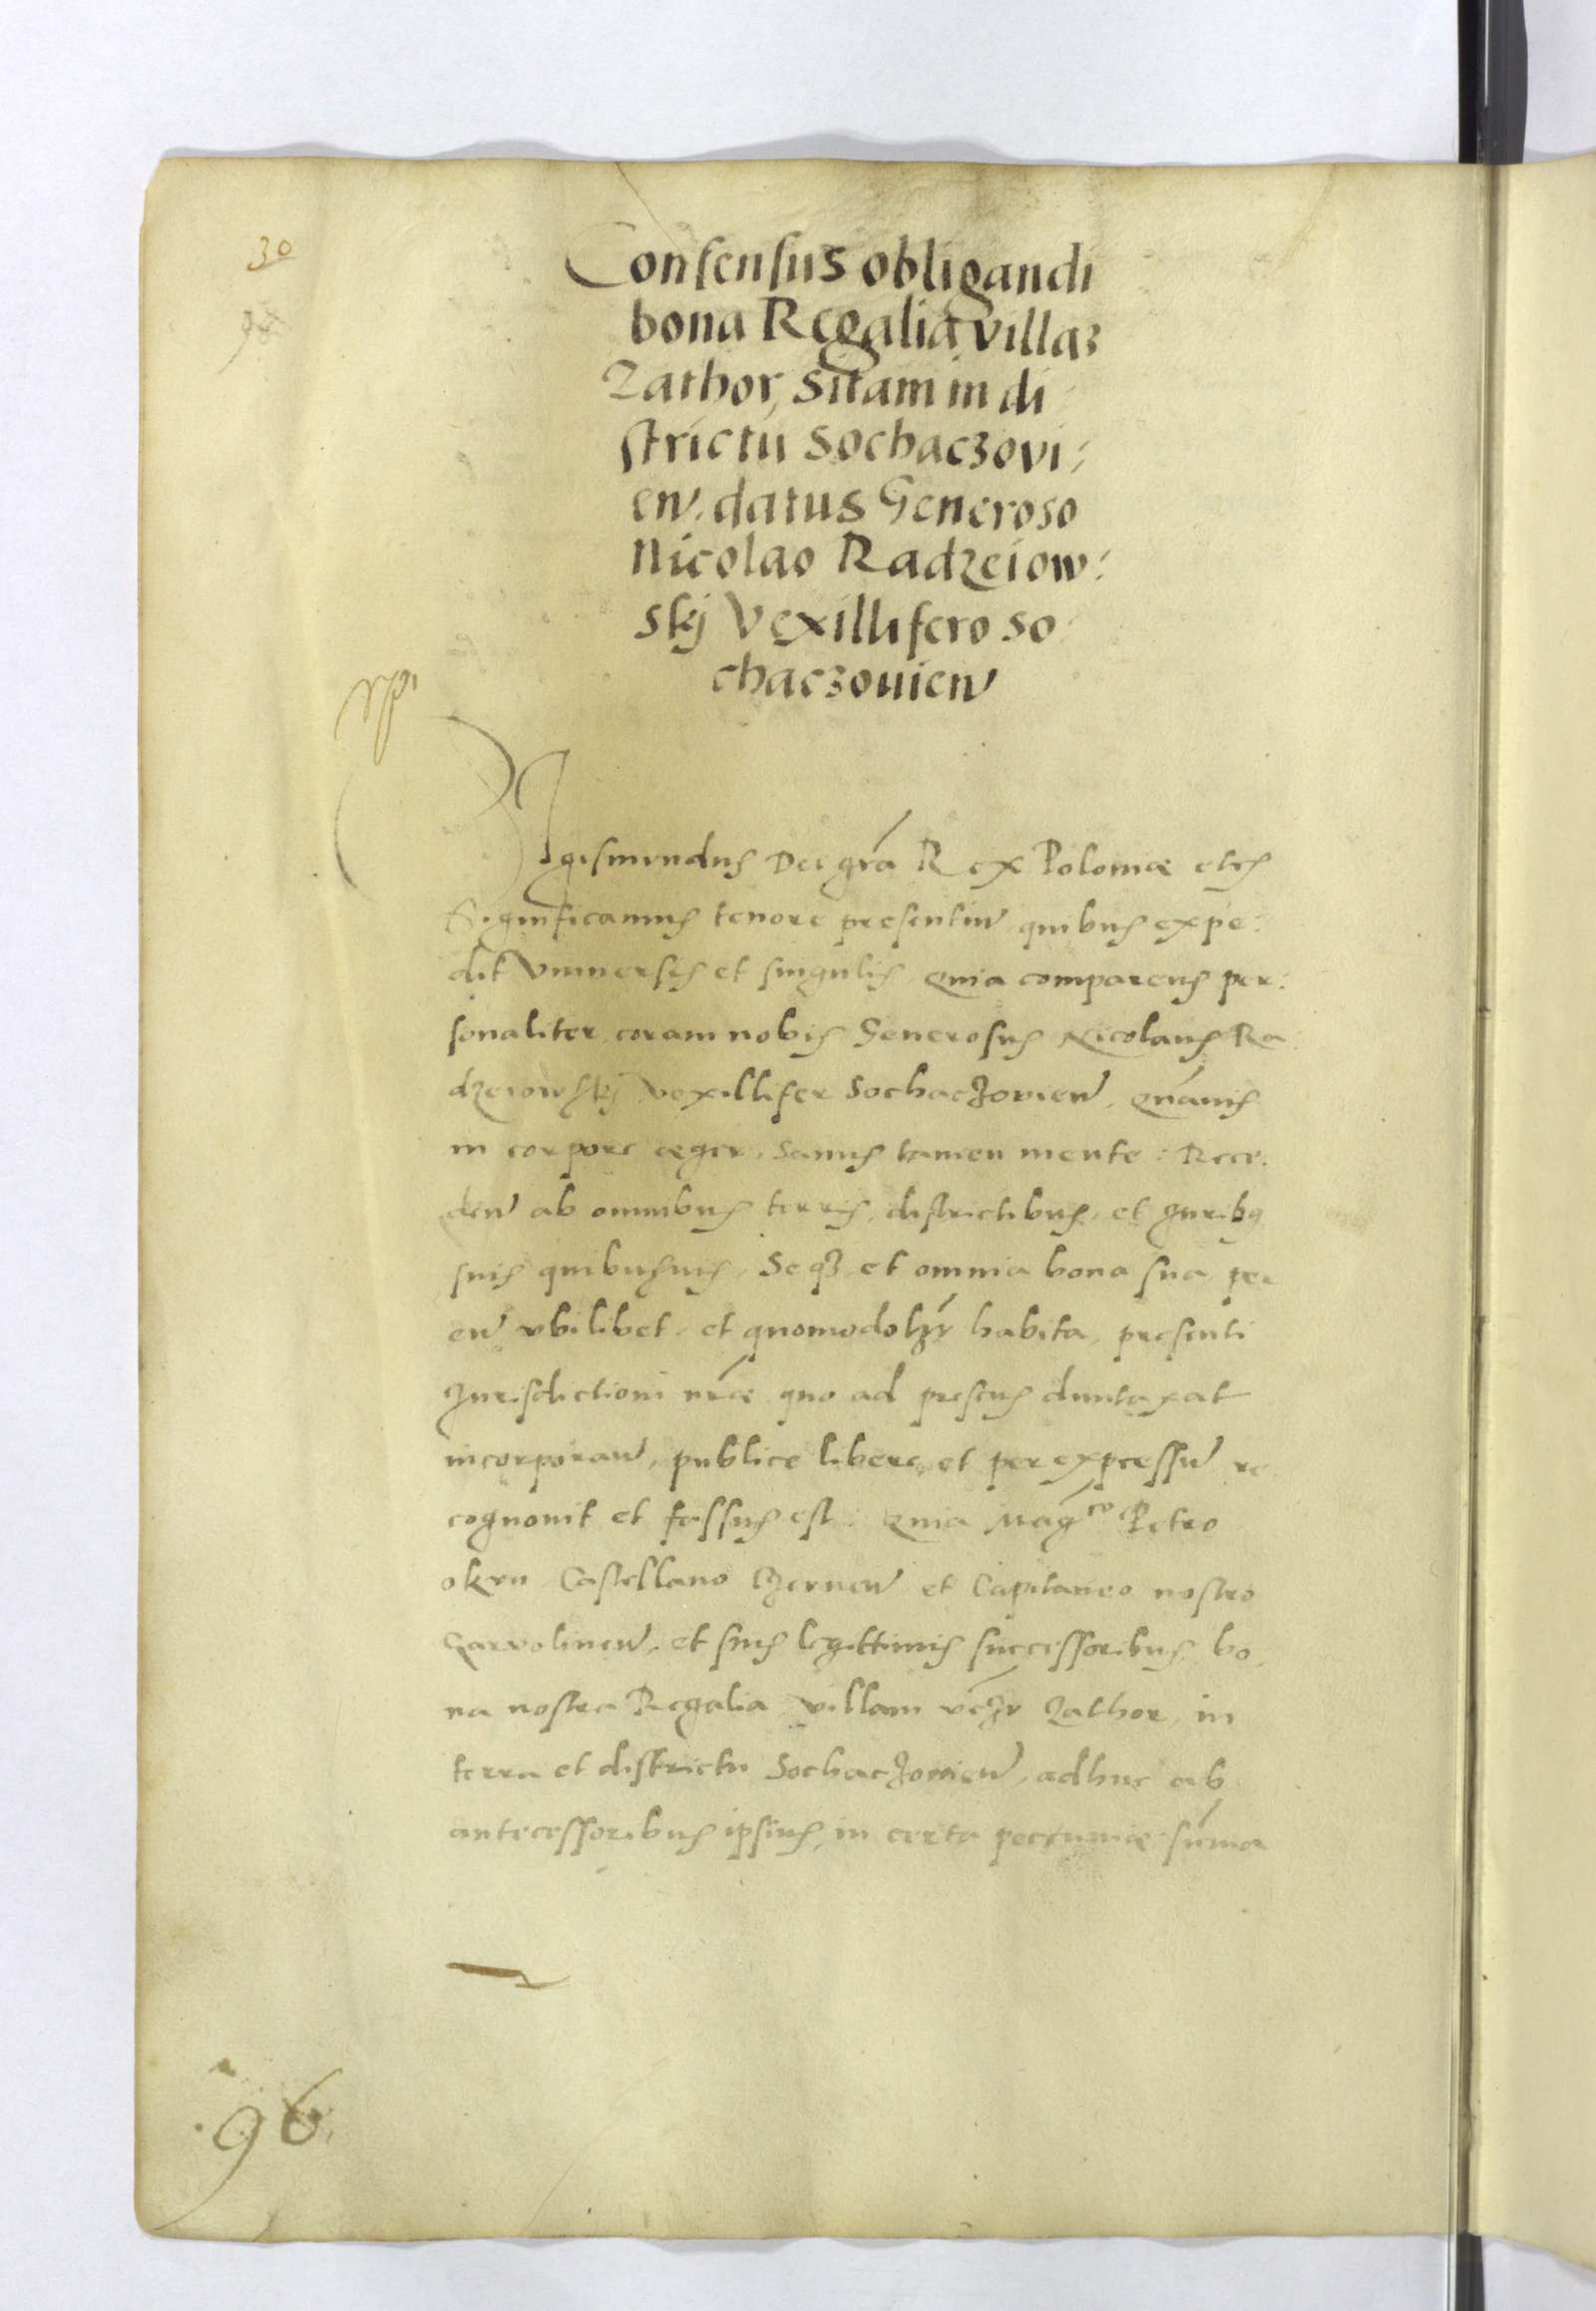 30
Consensus obligandi
bona Regalia villaȝ
Zathor, Sitam in di
strictu Sochaczovi:
en̄. datus Generoso
Nicolao Radzeiow:
skj Vexillifero So
chaczouien̄
Sigismundus Dei gr̄a Rex Poloniæ etc̄
Significamus tenore presentiū quibus expe:
dit Vniuersis et singulis Quia comparens per:
sonaliter coram nobis Generosus Nicolaus Ra
dzeiowskj vexillifer Sochaczovien̄. Quāuis
in corpore æger, Sanus tamen mente: Rece:
den̄ ab omnibus terris, districtibus, et Juribꝫ
suis quibusuis, Seqꝫ et omnia bona sua per
en̄ vbilibet, et quomodolꝫr habita, presenti
Jurisdictioni nr̄æ quo ad presens duntaxat
incorporan̄, publice libere, et per expressū re
cognouit et fassus est. Quia Mag̅co Petro
okun Castellano Czernen̄ et Capitaneo nostro
Garvolinen̄, et suis legittimis successoribus bo
na nostra Regalia villam vcꝫr Zathor, in
terra et districtu Sochaczovien̄, adhuc ab
antecessoribus ipsius, in certa peccuniæ sūma
96